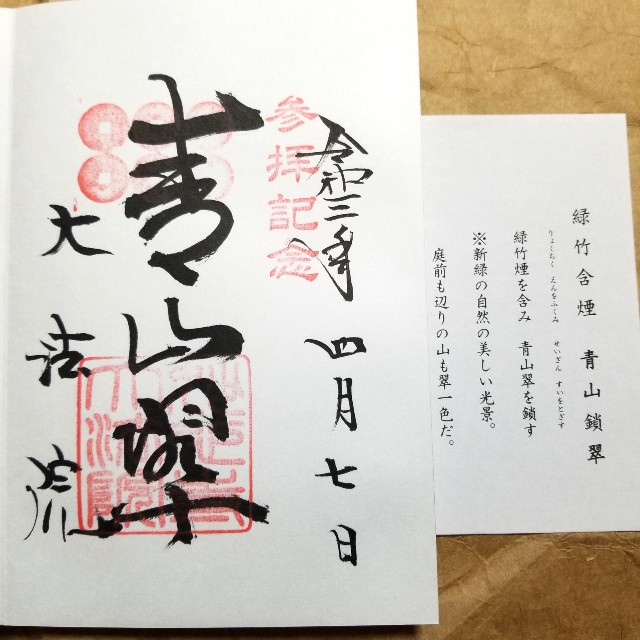 緑竹含煙 青山鎖翠
りょくちく えんをふくみ せいざん すいをとざす
緑竹煙を含み 青山翠を鎖す
※新緑の自然の美しい光景。
庭前も辺りの山も翠一色だ。
令和三年四月七日
参拝記念
青山翠
大法院